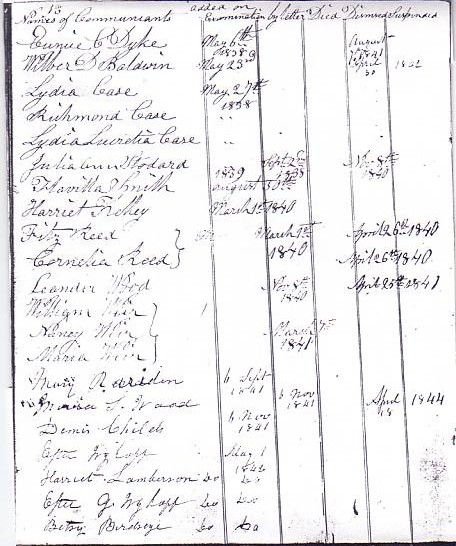 13
Names of Communicants added on Examination by letter Died Dismissed Suspended
Eunice C Dyke May 6th 1838 August 1841
Wilber D Baldwin May 23rd April 30 1842
Lydia Case May 27th 1838
Richmond Case "
Lydia Lucretia Case "
Julia Ann Stodard Sept 2nd 1838 Nov 8th 1840
Smith 1839 August 30th
Harriet March 1st 1840
Fitz Reed March 1st 1840 April 26th 1840
Cornelia Reed April 26th 1840
Leander Wood Nov 8th 1840 April 25th 1841
William
Nancy March 7th 1841
Maria
Mary 6 Sept 1841
L. Wood 6 Nov 1841 April 18 1844
Demis Childs 6 Nov 1841
May 1 1842
Harriet Lamberson Do Do
G. Do Do
Betsy Birdseye Do Do